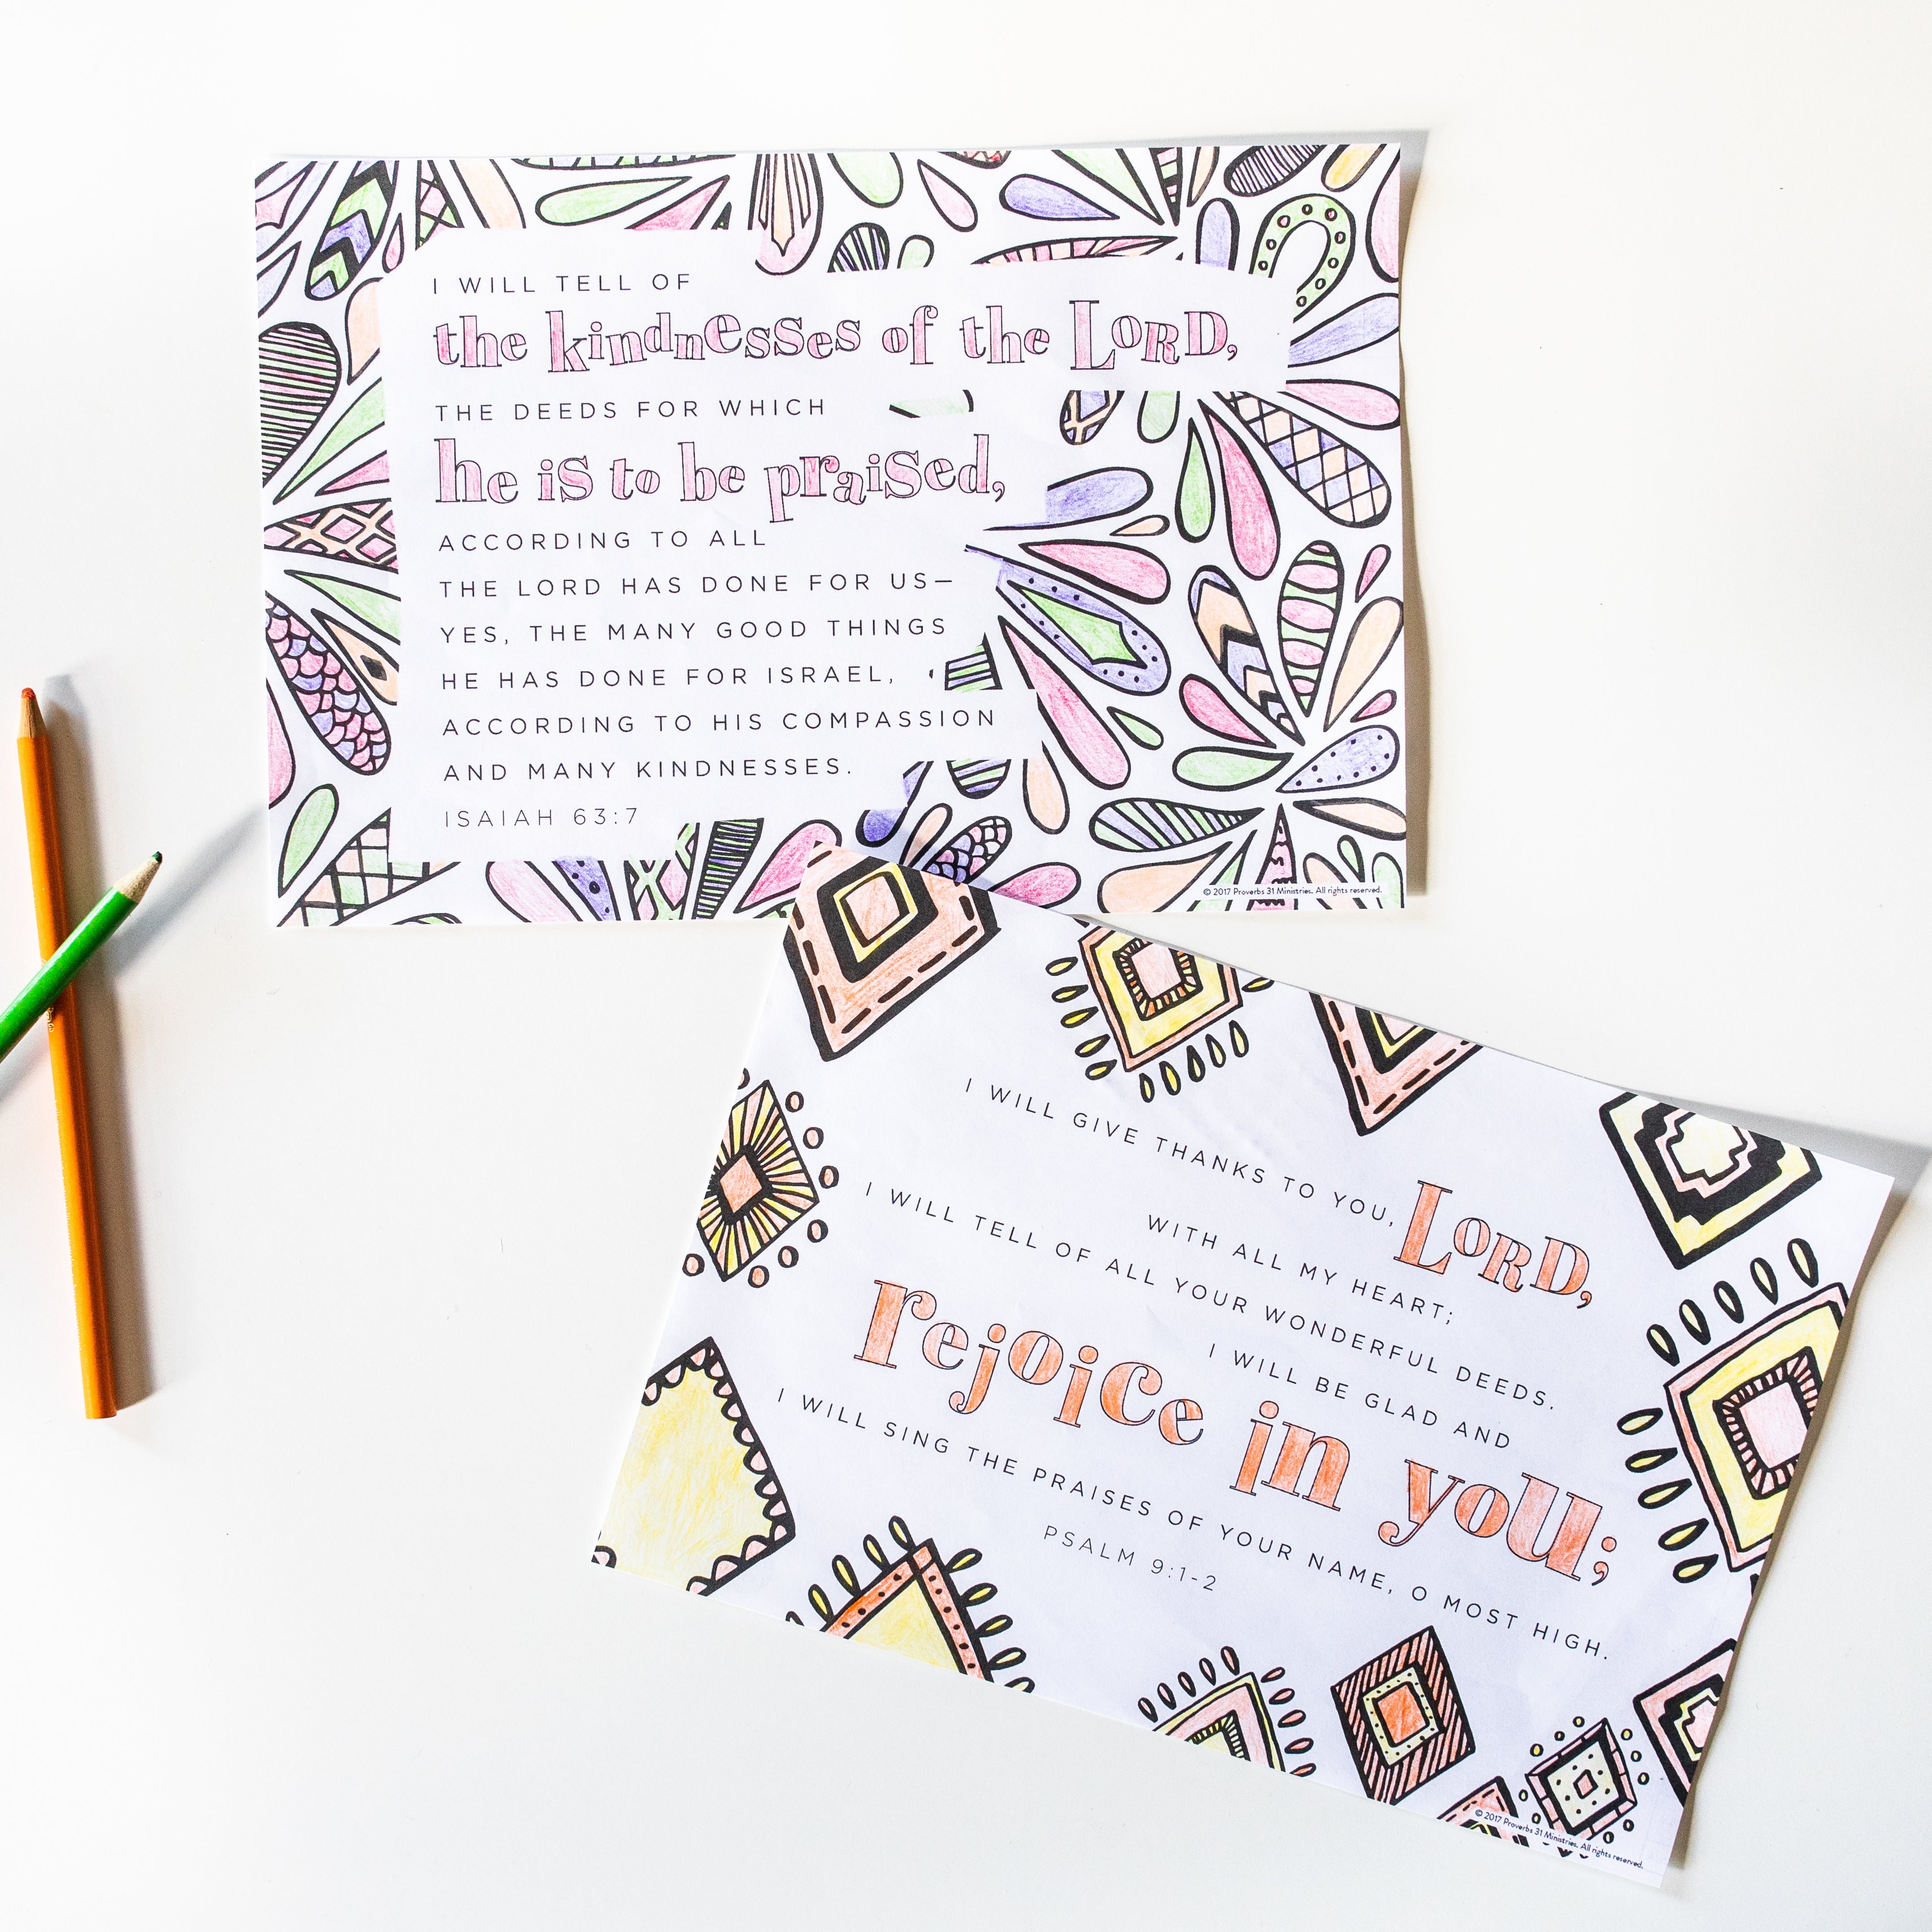 I WILL TELL OF
the kindnesses of the LORD,
THE DEEDS FOR WHICH
he is to be praised,
ACCORDING TO ALL
THE LORD HAS DONE FOR US—
YES, THE MANY GOOD THINGS
HE HAS DONE FOR ISRAEL,
ACCORDING TO HIS COMPASSION
AND MANY KINDNESSES.
ISAIAH 63:7
© 2017 Proverbs 31 Ministries. All rights reserved.
I WILL GIVE THANKS TO YOU, LORD,
WITH ALL MY HEART;
I WILL TELL OF ALL YOUR WONDERFUL DEEDS.
I WILL BE GLAD AND
rejoice in you;
I WILL SING THE PRAISES OF YOUR NAME, O MOST HIGH.
PSALM 9:1-2
© 2017 Proverbs 31 Ministries. All rights reserved.